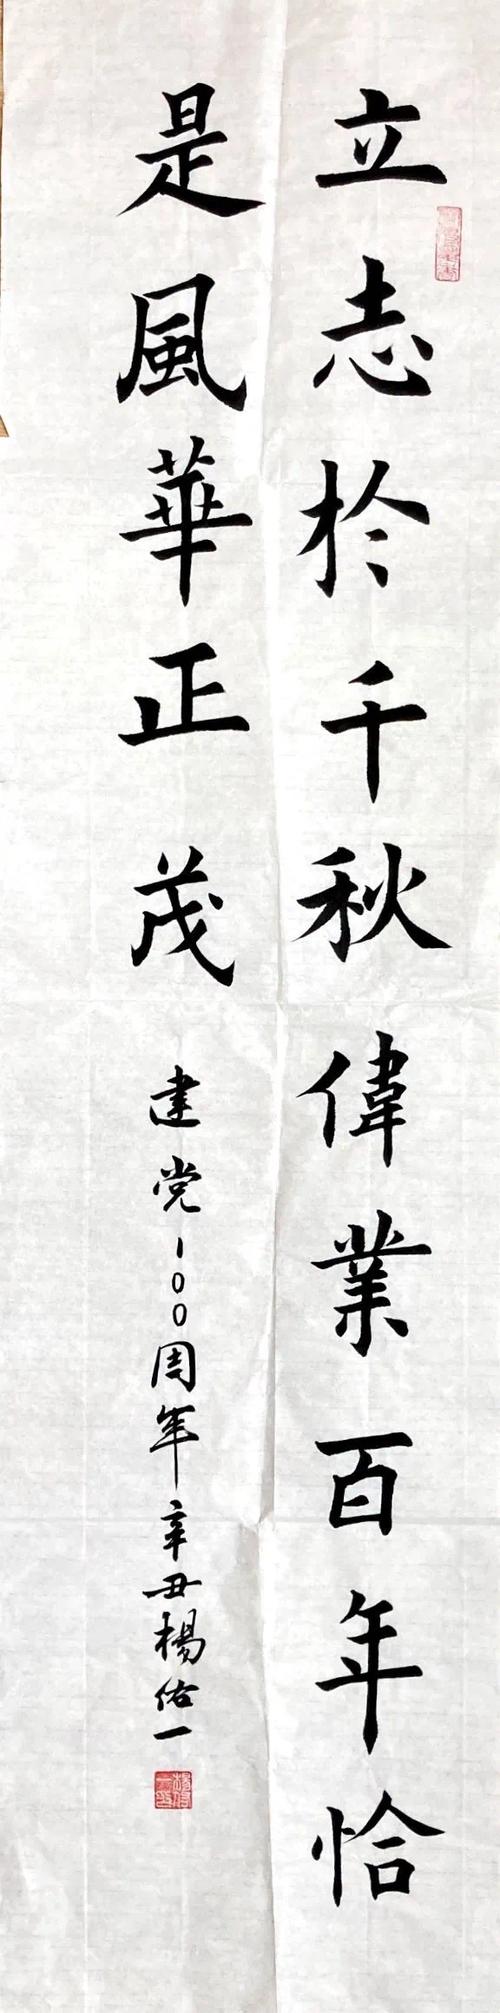 立志於千秋偉業百年恰
是風華正茂
建党100周年辛丑楊佑一